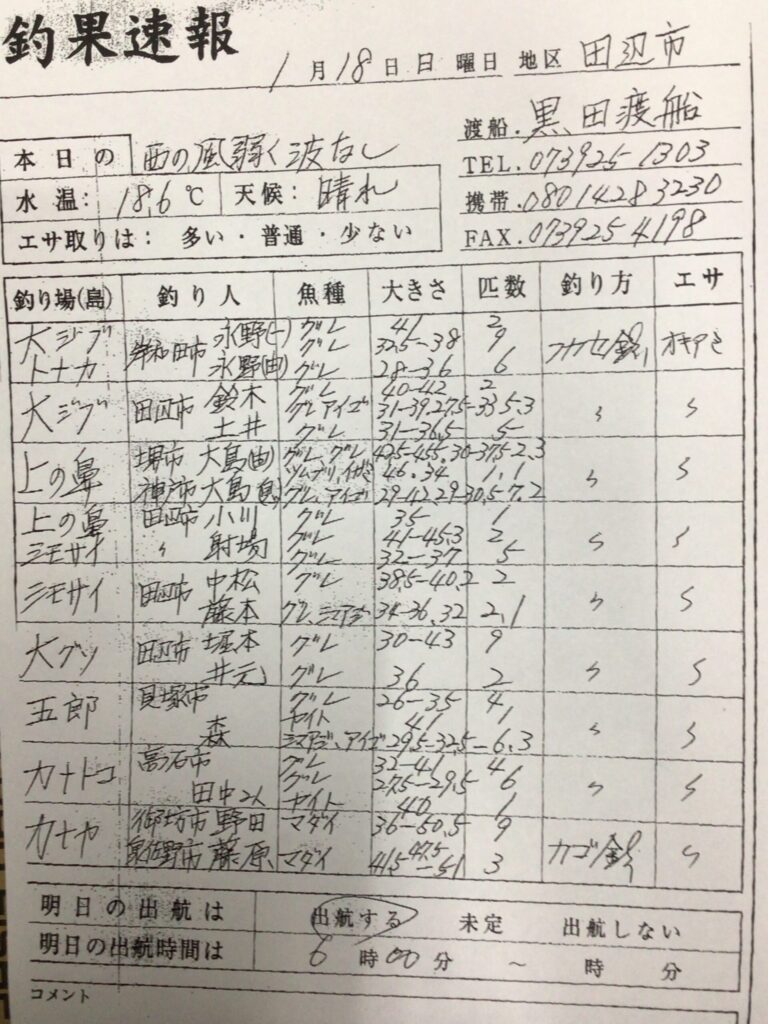 釣果速報
1月18日日曜日 地区 田辺市
渡船.黒田渡船
本日の 西の風弱く波なし
TEL.0739251303
水温: 18.6℃ 天候: 晴れ
携帯.08014283230
エサ取りは: 多い・普通・少ない
FAX.0739254198
釣り場(島) 釣り人 魚種 大きさ 匹数 釣り方 エサ
大ジブ 永野(一) グレ 41 2
岸和田市 グレ 32.5-38 9 フカセ釣 オキアミ
トナカ 永野(由) グレ 28-36 6
大ジブ 田辺市 鈴木 グレ 40-42 2
グレ アイゴ 31-39.27.5-33 5.3 〃 〃
土井 グレ 31-36.5 5
上の鼻 堺市 大島(由) グレ、グレ 42.5-45.5.30-37.5 2.3
ツムブリ、イガミ 46.34 1.1 〃 〃
神戸市 大島 グレ、アイゴ 29-42.29-30.5 7.2
上の鼻 田辺市 小川 グレ 35 1
グレ 41-45.3 2 〃 〃
シモサイ 〃 射場 グレ 32-37 5
シモサイ 田辺市 中松 グレ 38.5-40.2 2 〃 〃
藤本 グレ、シマアジ 34-36.32 2.1
大グツ 田辺市 堀本 グレ 30-43 9 〃 〃
井元 グレ 36 2
五郎 貝塚市 グレ 26-35 4
ヤイト 41 1 〃 〃
森 シマアジ、アイゴ 29.5-32.5- 6.3
カナトコ 高石市 グレ 32-41 4
グレ 27.5-29.5 6 〃 〃
田中2人 ヤイト 40 1
カナヤ 御坊市 野田 マダイ 36-50.5 9
泉佐野市 藤原 マダイ 41.5 47.5-51 3 カゴ釣 〃
明日の出航は 出航する 未定 出航しない
明日の出航時間は 6時00分 ~ 時 分
コメント